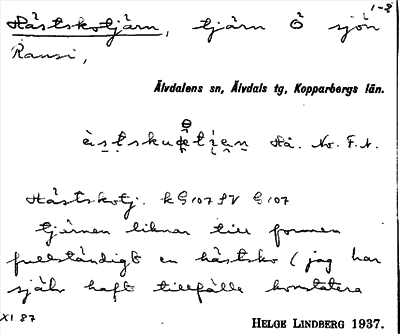 1-2
Hästskotjärn, tjärn Ö sjön
Ransi,
Älvdalens sn, Älvdals tg, Kopparbergs län.
Hå. No. F. N.
Hästskotj. k G 107 SV G 107
tjärnen liknar till formen
fullständigt en hästsko (jag har
själv haft tillfälle konstatera
XI 87
HELGE LINDBERG 1937.